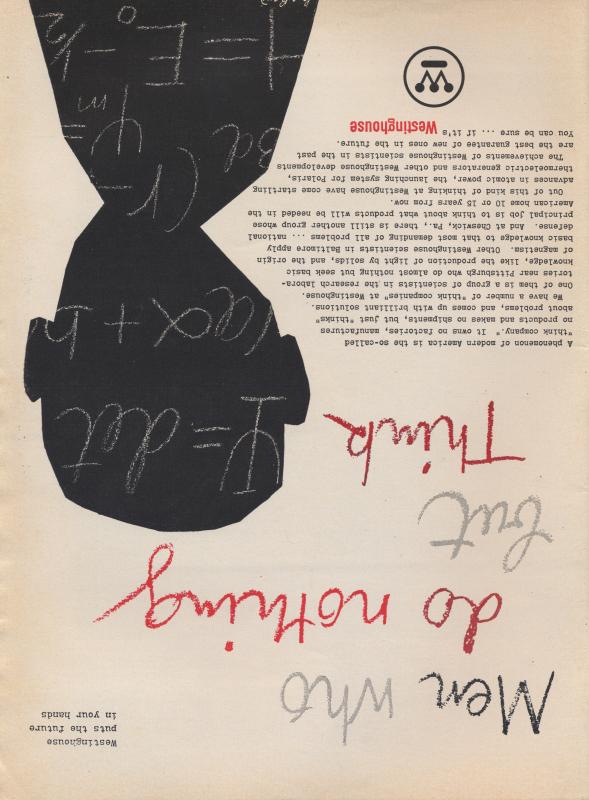 Westinghouse
puts the future
in your hands
Men who
do nothing
but
Think
A phenomenon of modern America is the so-called
"think company." It owns no factories, manufactures
no products and makes no shipments, but just "thinks"
about problems, and comes up with brilliant solutions.
We have a number of "think companies" at Westinghouse.
One of them is a group of scientists in the research labora-
tories near Pittsburgh who do almost nothing but seek basic
knowledge, like the production of light by solids, and the origin
of magnetism. Other Westinghouse scientists in Baltimore apply
basic knowledge to that most demanding of all problems ... national
defense. And at Cheswick, Pa., there is still another group whose
principal job is to think about what products will be needed in the
American home 10 or 15 years from now.
Out of this kind of thinking at Westinghouse have come startling
advances in atomic power, the launching system for Polaris,
thermoelectric generators and other Westinghouse developments
The achievements of Westinghouse scientists in the past
are the best guarantee of new ones in the future.
You can be sure ... if it's Westinghouse
W
= det